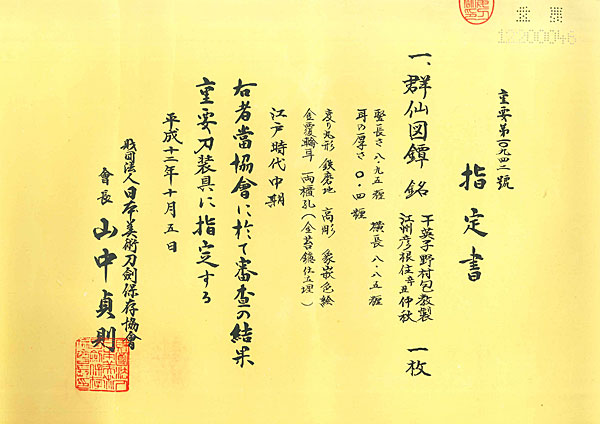 重要第一〇九四二號
指定書
一、群仙図鐔 銘 干英子野村包教製 江州彦根住辛丑仲秋 一枚
竪長さ 八・九五糎 横長 八・八五糎
耳の厚さ 〇・四糎
変り丸形 鉄磨地 高彫 象嵌色絵
金覆輪耳 両櫃孔(金苔鑢仕立埋)
江戸時代中期
右者當協會に於て審査の結果
重要刀装具に指定する
平成十二年十月五日
財団法人日本美術刀劍保存協會
會長 山中貞則
12200046